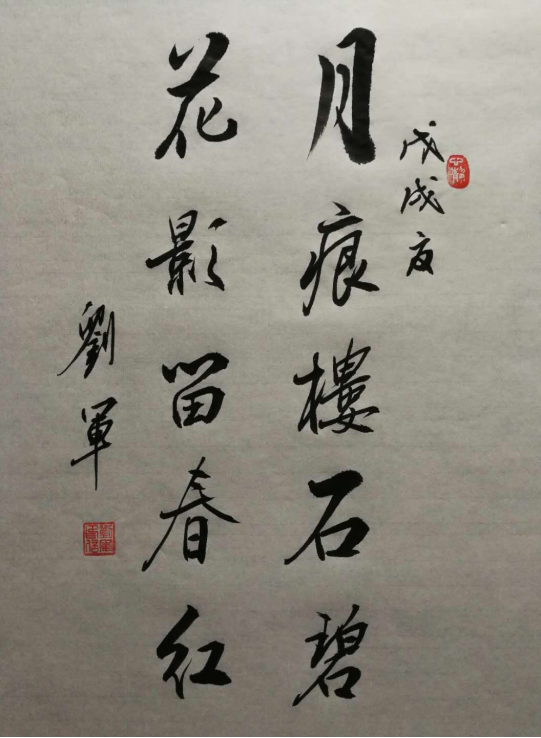 戊戌夏
月痕樓石碧
花影留春红
劉軍